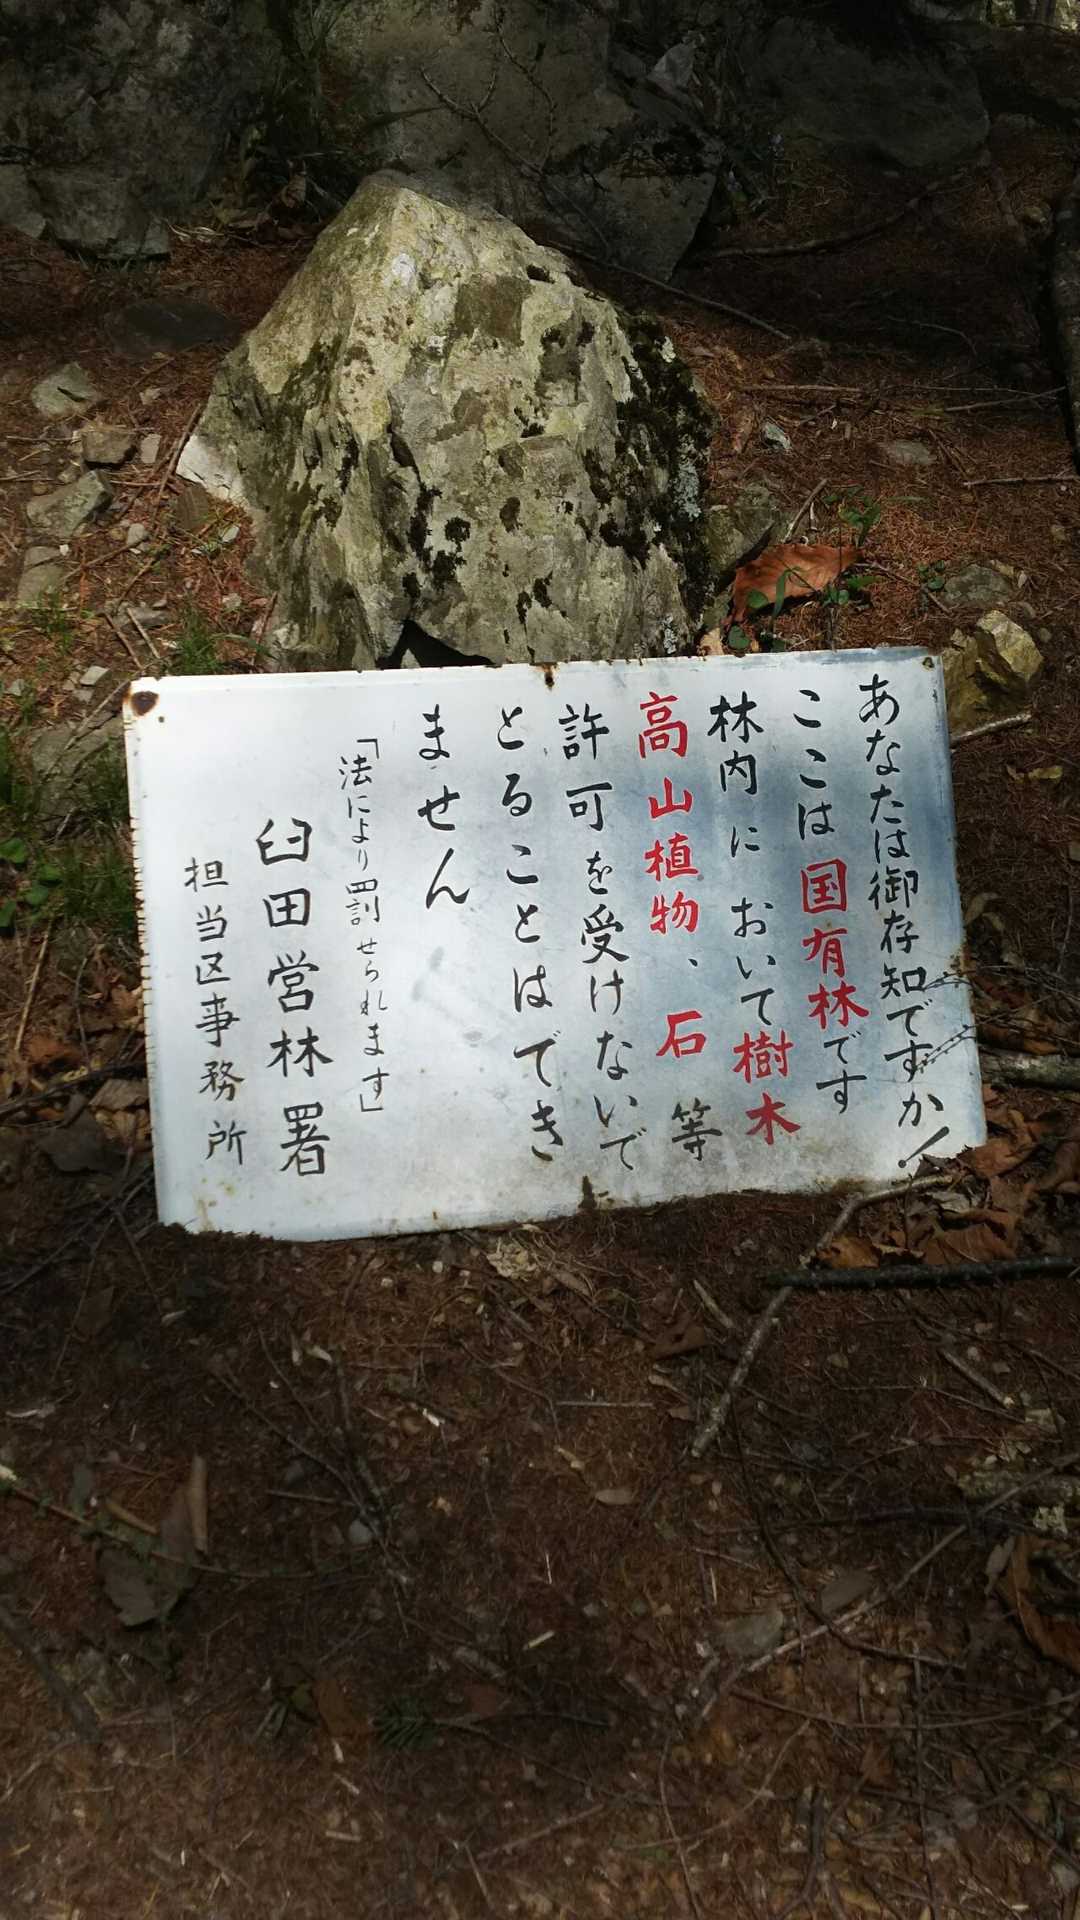 あなたは御存知ですか！
ここは国有林です
林内において樹木
高山植物、石等
許可を受けないで
とることはでき
ません
「法により罰せられます」
臼田営林署
担当区事務所